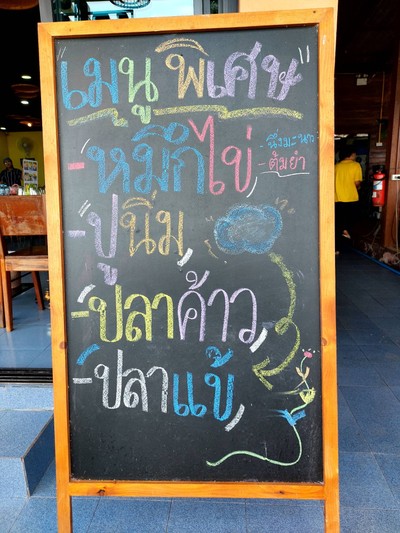 เมนูพิเศษ
- หมึกไข่ - นึ่งมะนาว
- ต้มยำ
- ปูนิ่ม
- ปลาค้าว
- ปลาแข้